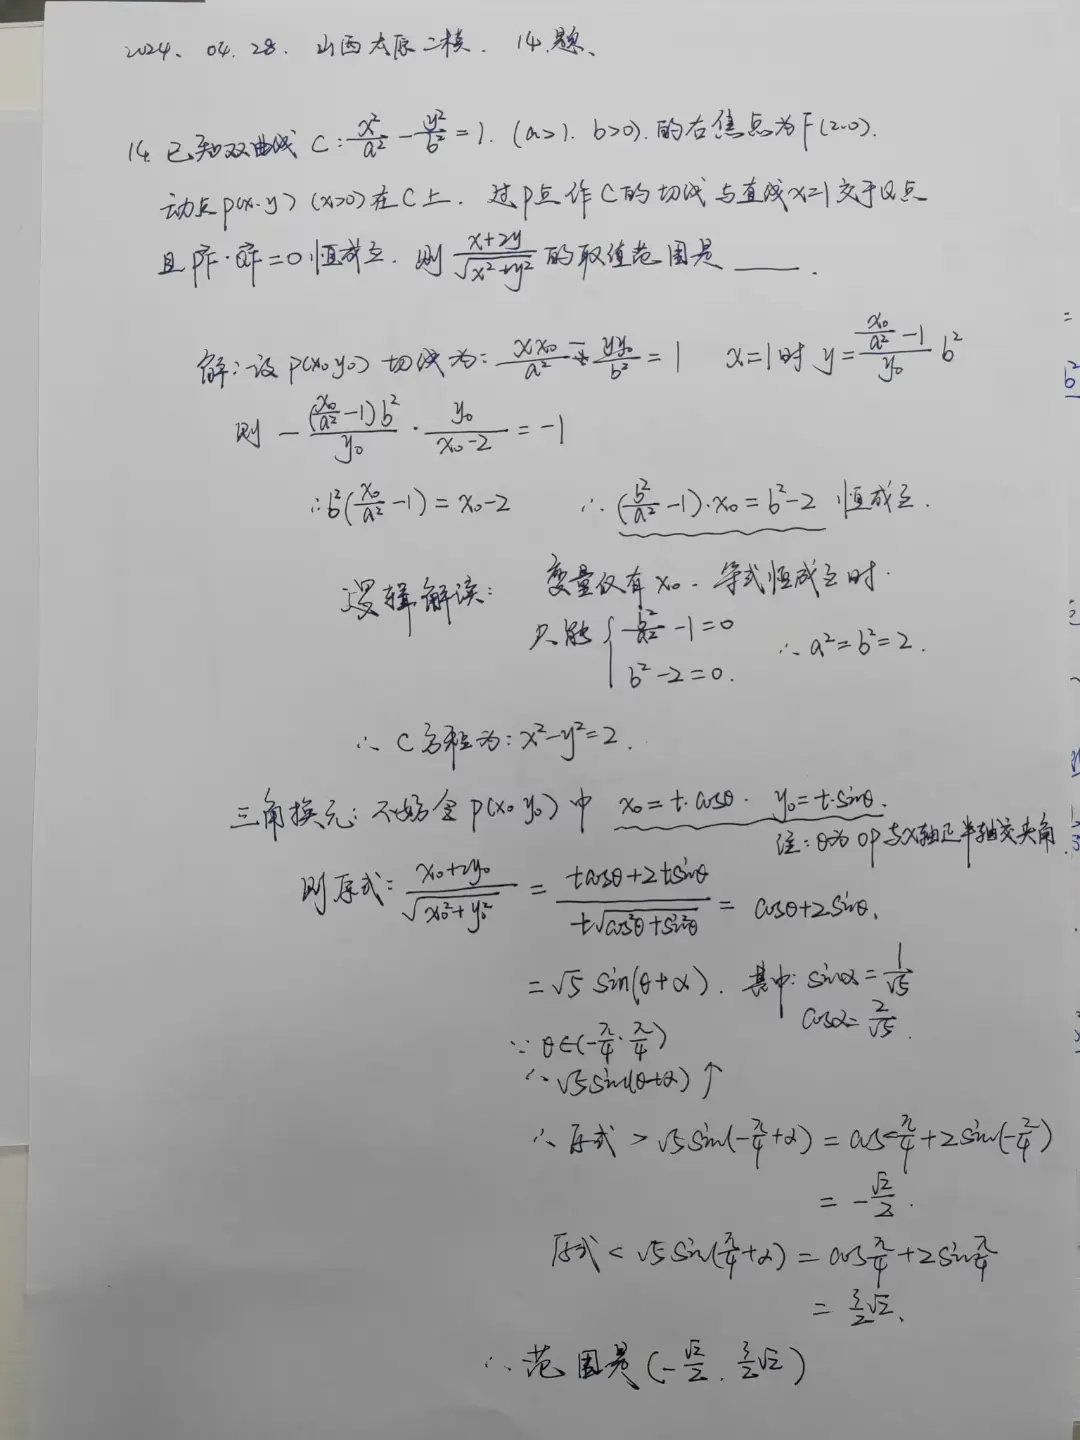 2024. 04. 28. 山西太原二模. 14.题、
14. 已知双曲线 C: x²/a² - y²/b² = 1. (a>1. b>0). 的右焦点为F(2.0).
动点P(x.y) (x>0) 在C上. 过P点作C的切线与直线x=1交于Q点
且 PF·QF = 0 恒成立. 则 (x+2y)/√(x²+y²) 的取值范围是 ____ .
解: 设P(x₀ y₀) 切线为: xx₀/a² - yy₀/b² = 1 x=1时 y = (x₀/a² - 1)/y₀ b²
则 - (x₀/a² - 1)b²/y₀ · y₀/(x₀-2) = -1
∴ b²(x₀/a² - 1) = x₀-2 ∴ (b²/a² - 1)·x₀ = b²-2 恒成立.
逻辑解读: 变量仅有x₀. 等式恒成立时.
只能 { b²/a² - 1 = 0
b² - 2 = 0. ∴ a² = b² = 2.
∴ C方程为: x² - y² = 2.
三角换元: 不妨令P(x₀ y₀)中 x₀ = t·cosθ. y₀ = t·sinθ.
注: θ为OP与x轴正半轴交夹角
则原式: (x₀+2y₀)/√(x₀²+y₀²) = (tcosθ+2tsinθ)/(t√(cos²θ+sin²θ)) = cosθ+2sinθ.
= √5 sin(θ+α). 其中: sinα = 1/√5
cosα = 2/√5.
∵ θ∈(-π/4. π/4)
∴ √5sin(θ+α) ↑
∴ 原式 > √5sin(-π/4+α) = cos-π/4 + 2sin(-π/4)
= -√2/2.
原式 < √5sin(π/4+α) = cosπ/4 + 2sinπ/4
= 3/2√2、
∴ 范围是 (-√2/2. 3/2√2)